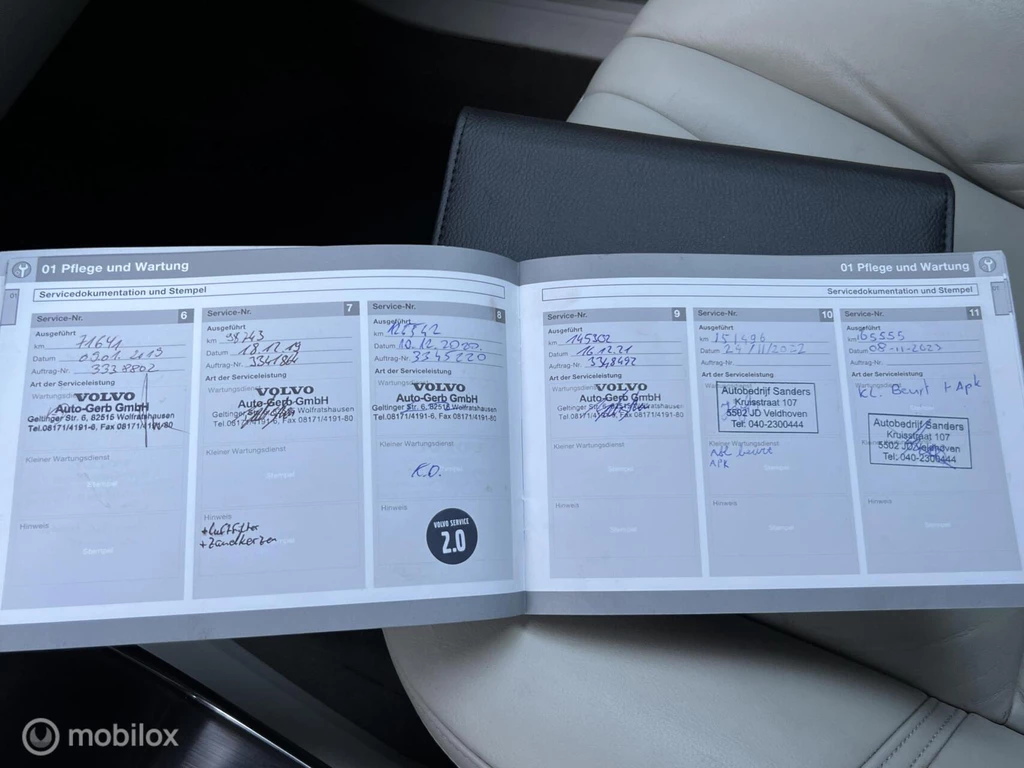 01 Pflege und Wartung
Servicedokumentation und Stempel
Service-Nr. 6
Ausgeführt
km 71641
Datum 09.01.2019
Auftrag-Nr. 3338802
Art der Serviceleistung
Wartungsdienst
VOLVO
Auto-Gerb GmbH
Geltinger Str. 6, 82515 Wolfratshausen
Tel.08171/4191-0, Fax 08171/4191-80
Kleiner Wartungsdienst
Stempel
Hinweis
Stempel
Service-Nr. 7
Ausgeführt
km 98243
Datum 18.12.19
Auftrag-Nr. 3341844
Art der Serviceleistung
Wartungsdienst
VOLVO
Auto-Gerb GmbH
Geltinger Wolfratshausen
Tel.08171/4191-0, Fax 08171/4191-80
Kleiner Wartungsdienst
Stempel
Hinweis
+Luftfilter
+Zündkerzen
Service-Nr. 8
Ausgeführt
km 122542
Datum 10.12.2020
Auftrag-Nr. 3345220
Art der Serviceleistung
VOLVO
Auto-Gerb GmbH
Geltinger Str. 6, 82515 Wolfratshausen
Tel.08171/4191-0, Fax 08171/4191-80
Kleiner Wartungsdienst
K.D.
Hinweis
VOLVO SERVICE
2.0
01 Pflege und Wartung
Servicedokumentation und Stempel
Service-Nr. 9
Ausgeführt
km 145302
Datum 16.12.21
Auftrag-Nr. 3348492
Art der Serviceleistung
VOLVO
Auto-Gerb GmbH
Geltinger Wolfratshausen
Tel.08171/4191-0, Fax 08171/4191-80
Kleiner Wartungsdienst
Stempel
Hinweis
Stempel
Service-Nr. 10
Ausgeführt
km 151496
Datum 24/11/2022
Auftrag-Nr.
Art der Serviceleistung
Autobedrijf Sanders
Kruisstraat 107
5502 JD Veldhoven
Tel: 040-2300444
Kleiner Wartungsdienst
beurt
APK
Hinweis
Stempel
Service-Nr. 11
Ausgeführt
km 165555
Datum 08-11-2023
Auftrag-Nr.
Art der Serviceleistung
KL. Beurt + Apk
Autobedrijf Sanders
Kruisstraat 107
5502 JD Veldhoven
Tel: 040-2300444
Hinweis
Stempel
mobilox